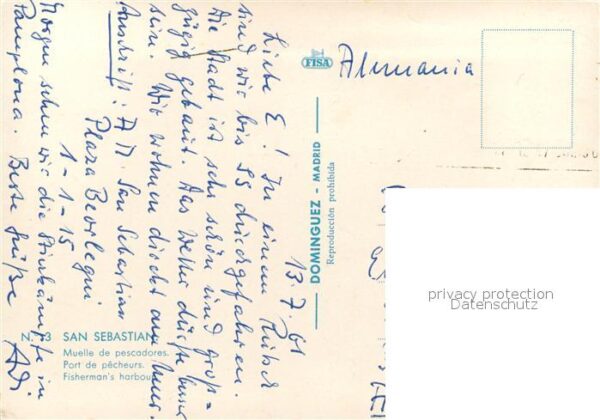 13.7.61
Liebe E! In einem Rutsch
sind wir bis SS durchgefahren.
Die Stadt ist sehr schön und groß-
zügig gebaut. Das Wetter dürfte besser
sein. Wir wohnen direkt am Meer.
Anschrift: A D San Sebastian
Plaza Beorlegui
1-1-15
Morgen sehen wir die Stierkämpfe in
Pamplona. Beste Grüße
FISA
Alemania
DOMINGUEZ - MADRID
Reproducción prohibida
N. 3 SAN SEBASTIAN
Muelle de pescadores.
Port de pêcheurs.
Fisherman's harbour
privacy protection
Datenschutz